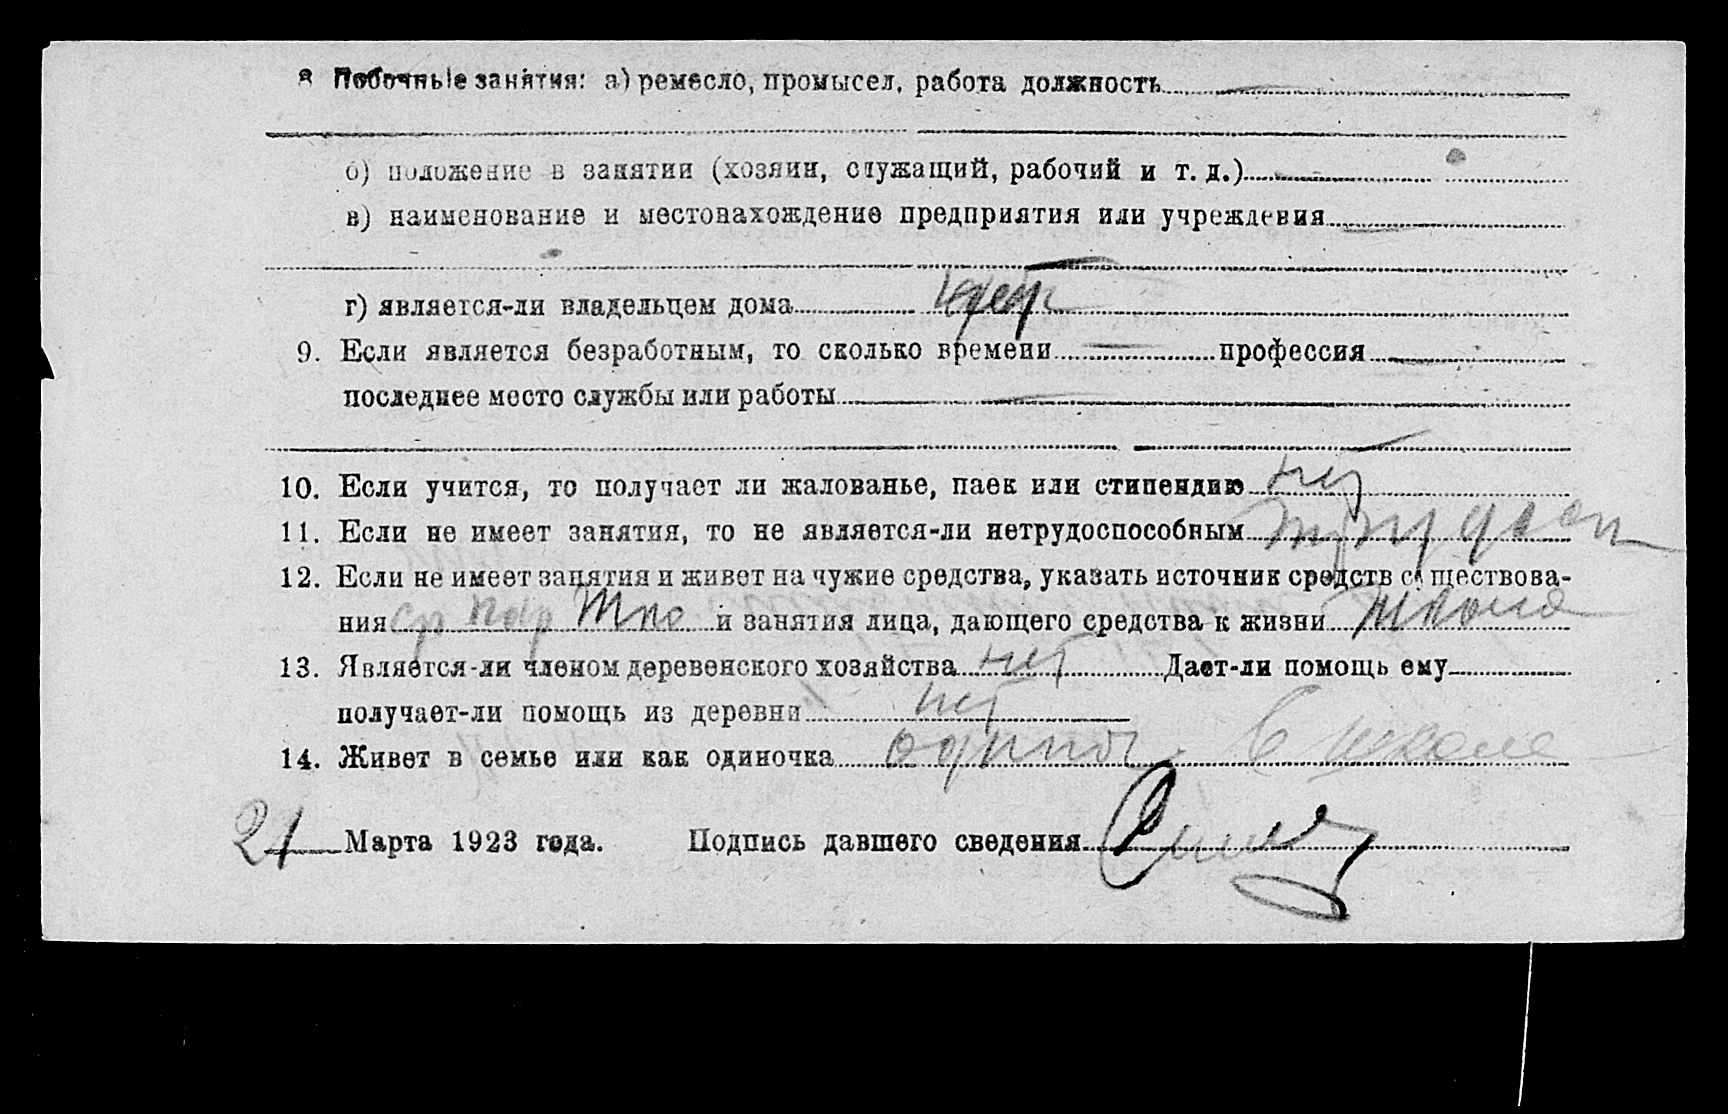 8 Побочные занятия: а) ремесло, промысел, работа должность
б) положение в занятии (хозяин, служащий, рабочий и т. д.)
в) наименование и местонахождение предприятия или учреждения
г) является-ли владельцем дома
9. Если является безработным, то сколько времени профессия
последнее место службы или работы
10. Если учится, то получает ли жалованье, паек или стипендию нет
11. Если не имеет занятия, то не является-ли нетрудоспособным
12. Если не имеет занятия и живет на чужие средства, указать источник средств существова-
ния и занятия лица, дающего средства к жизни школа
13. Является-ли членом деревенского хозяйства нет Дает-ли помощь ему
получает-ли помощь из деревни нет
14. Живет в семье или как одиночка одиноч. В школе
21 Марта 1923 года. Подпись давшего сведения